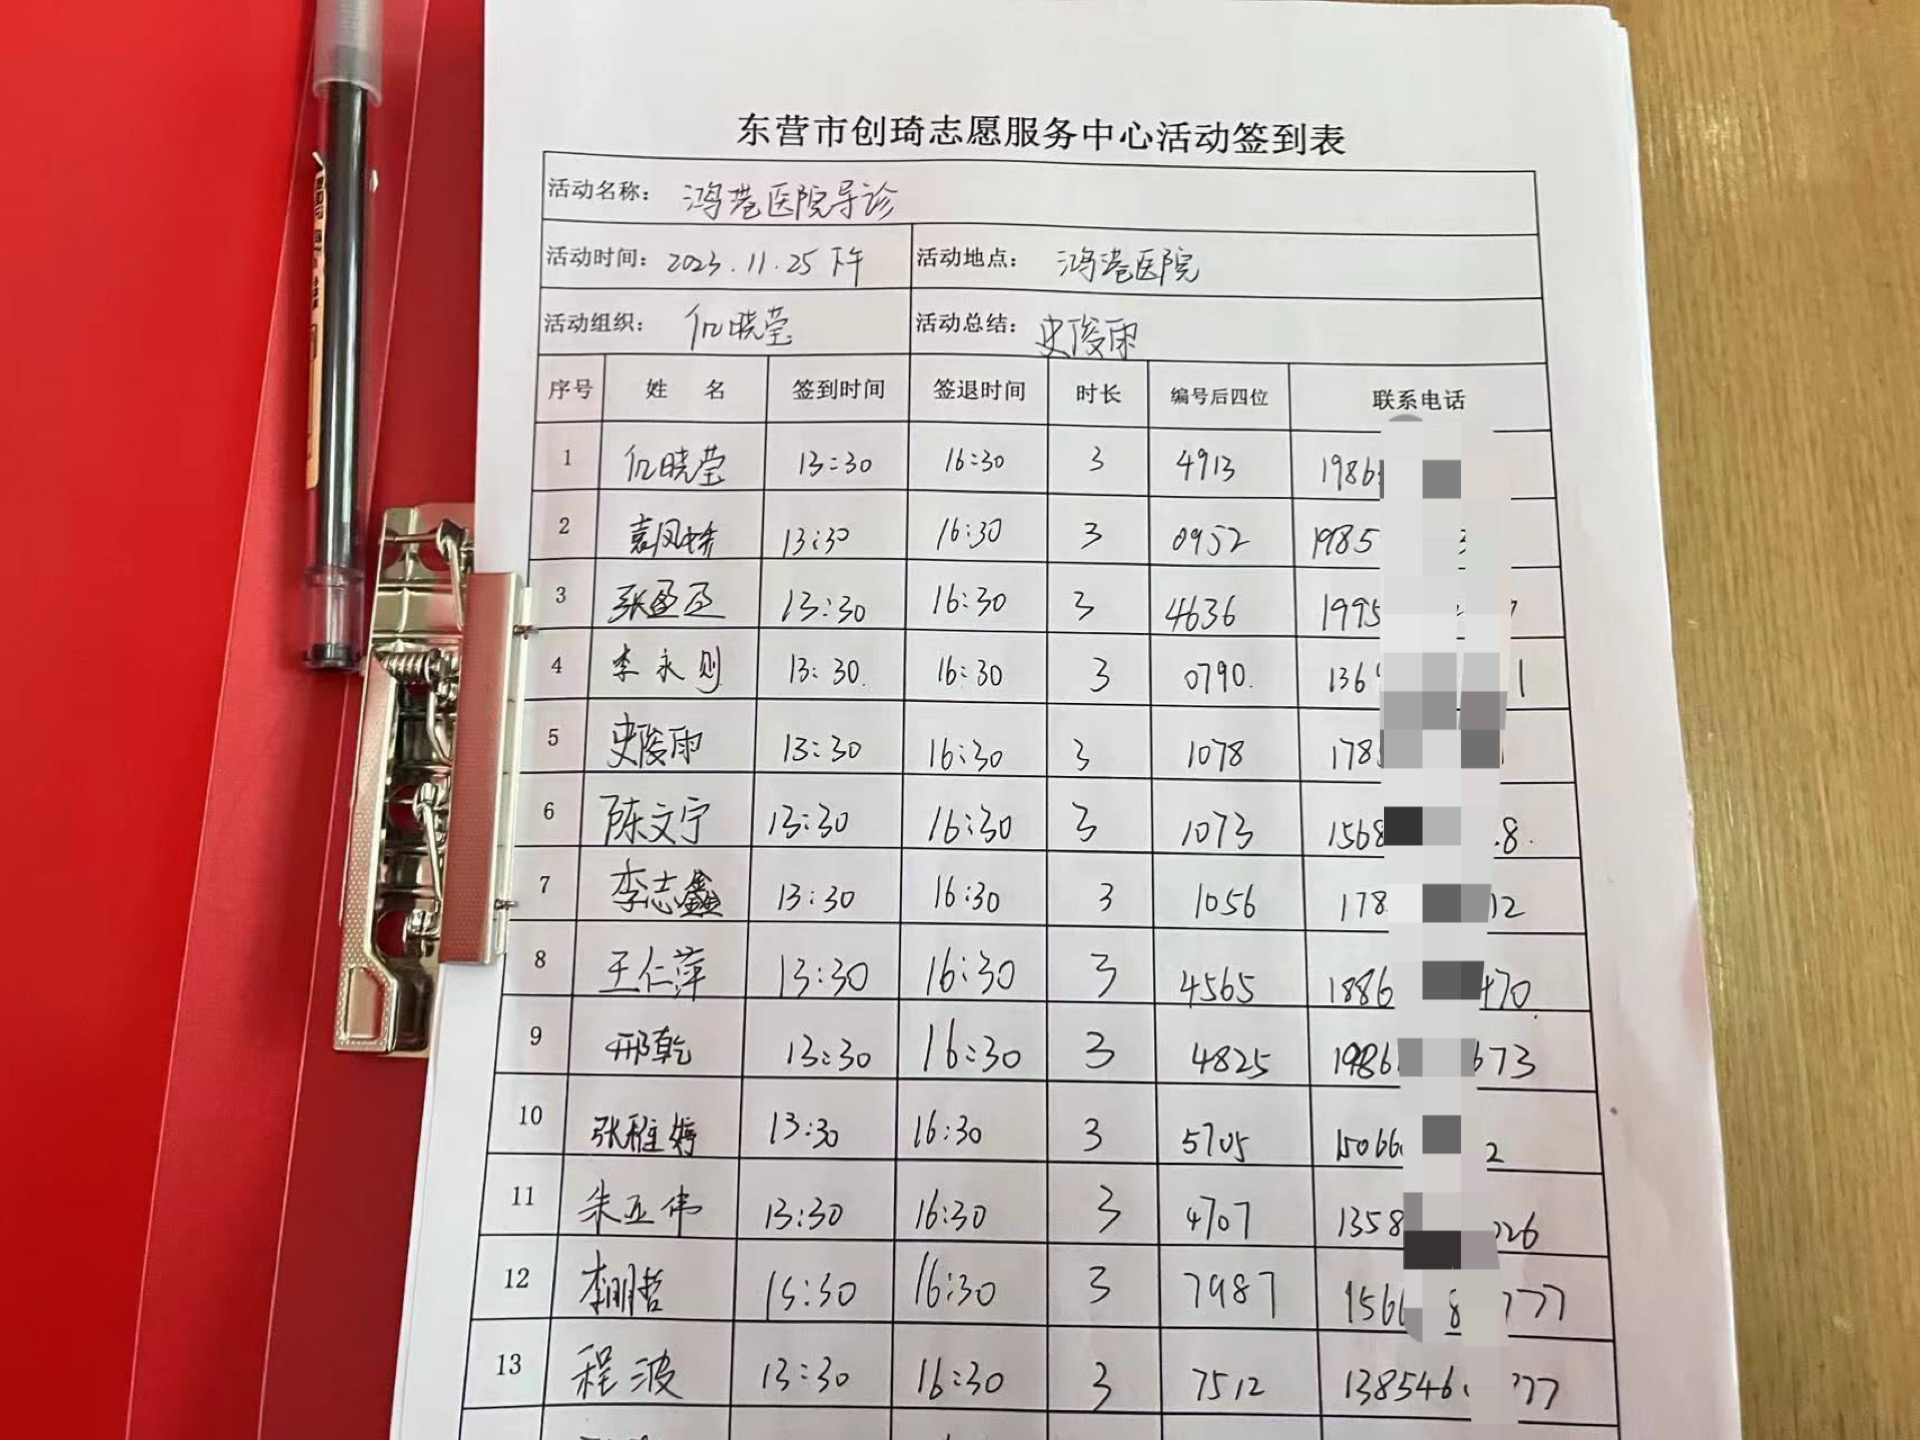 东营市创琦志愿服务中心活动签到表
活动名称： 鸿港医院导诊
活动时间： 2023.11.25 下午 活动地点： 鸿港医院
活动组织： 仉晓莹 活动总结： 史俊雨
序号 姓 名 签到时间 签退时间 时长 编号后四位 联系电话
1 仉晓莹 13:30 16:30 3 4913 1986
2 袁凤娇 13:30 16:30 3 0952 1985
3 张 13:30 16:30 3 4636 1995
4 李永则 13:30. 16:30 3 0790. 136 1
5 史俊雨 13:30 16:30 3 1078 178
6 陈文宁 13:30 16:30 3 1073 1568 8.
7 李志鑫 13:30 16:30 3 1056 178 12
8 王仁萍 13:30 16:30 3 4565 1886 470.
9 邢乾 13:30 16:30 3 4825 1986 673
10 张雅婷 13:30 16:30 3 5705 15066 2
11 朱亚伟 13:30 16:30 3 4707 1358 026
12 李明哲 13:30 16:30 3 7987 1566 8 777
13 程波 13:30 16:30 3 7512 138546 777